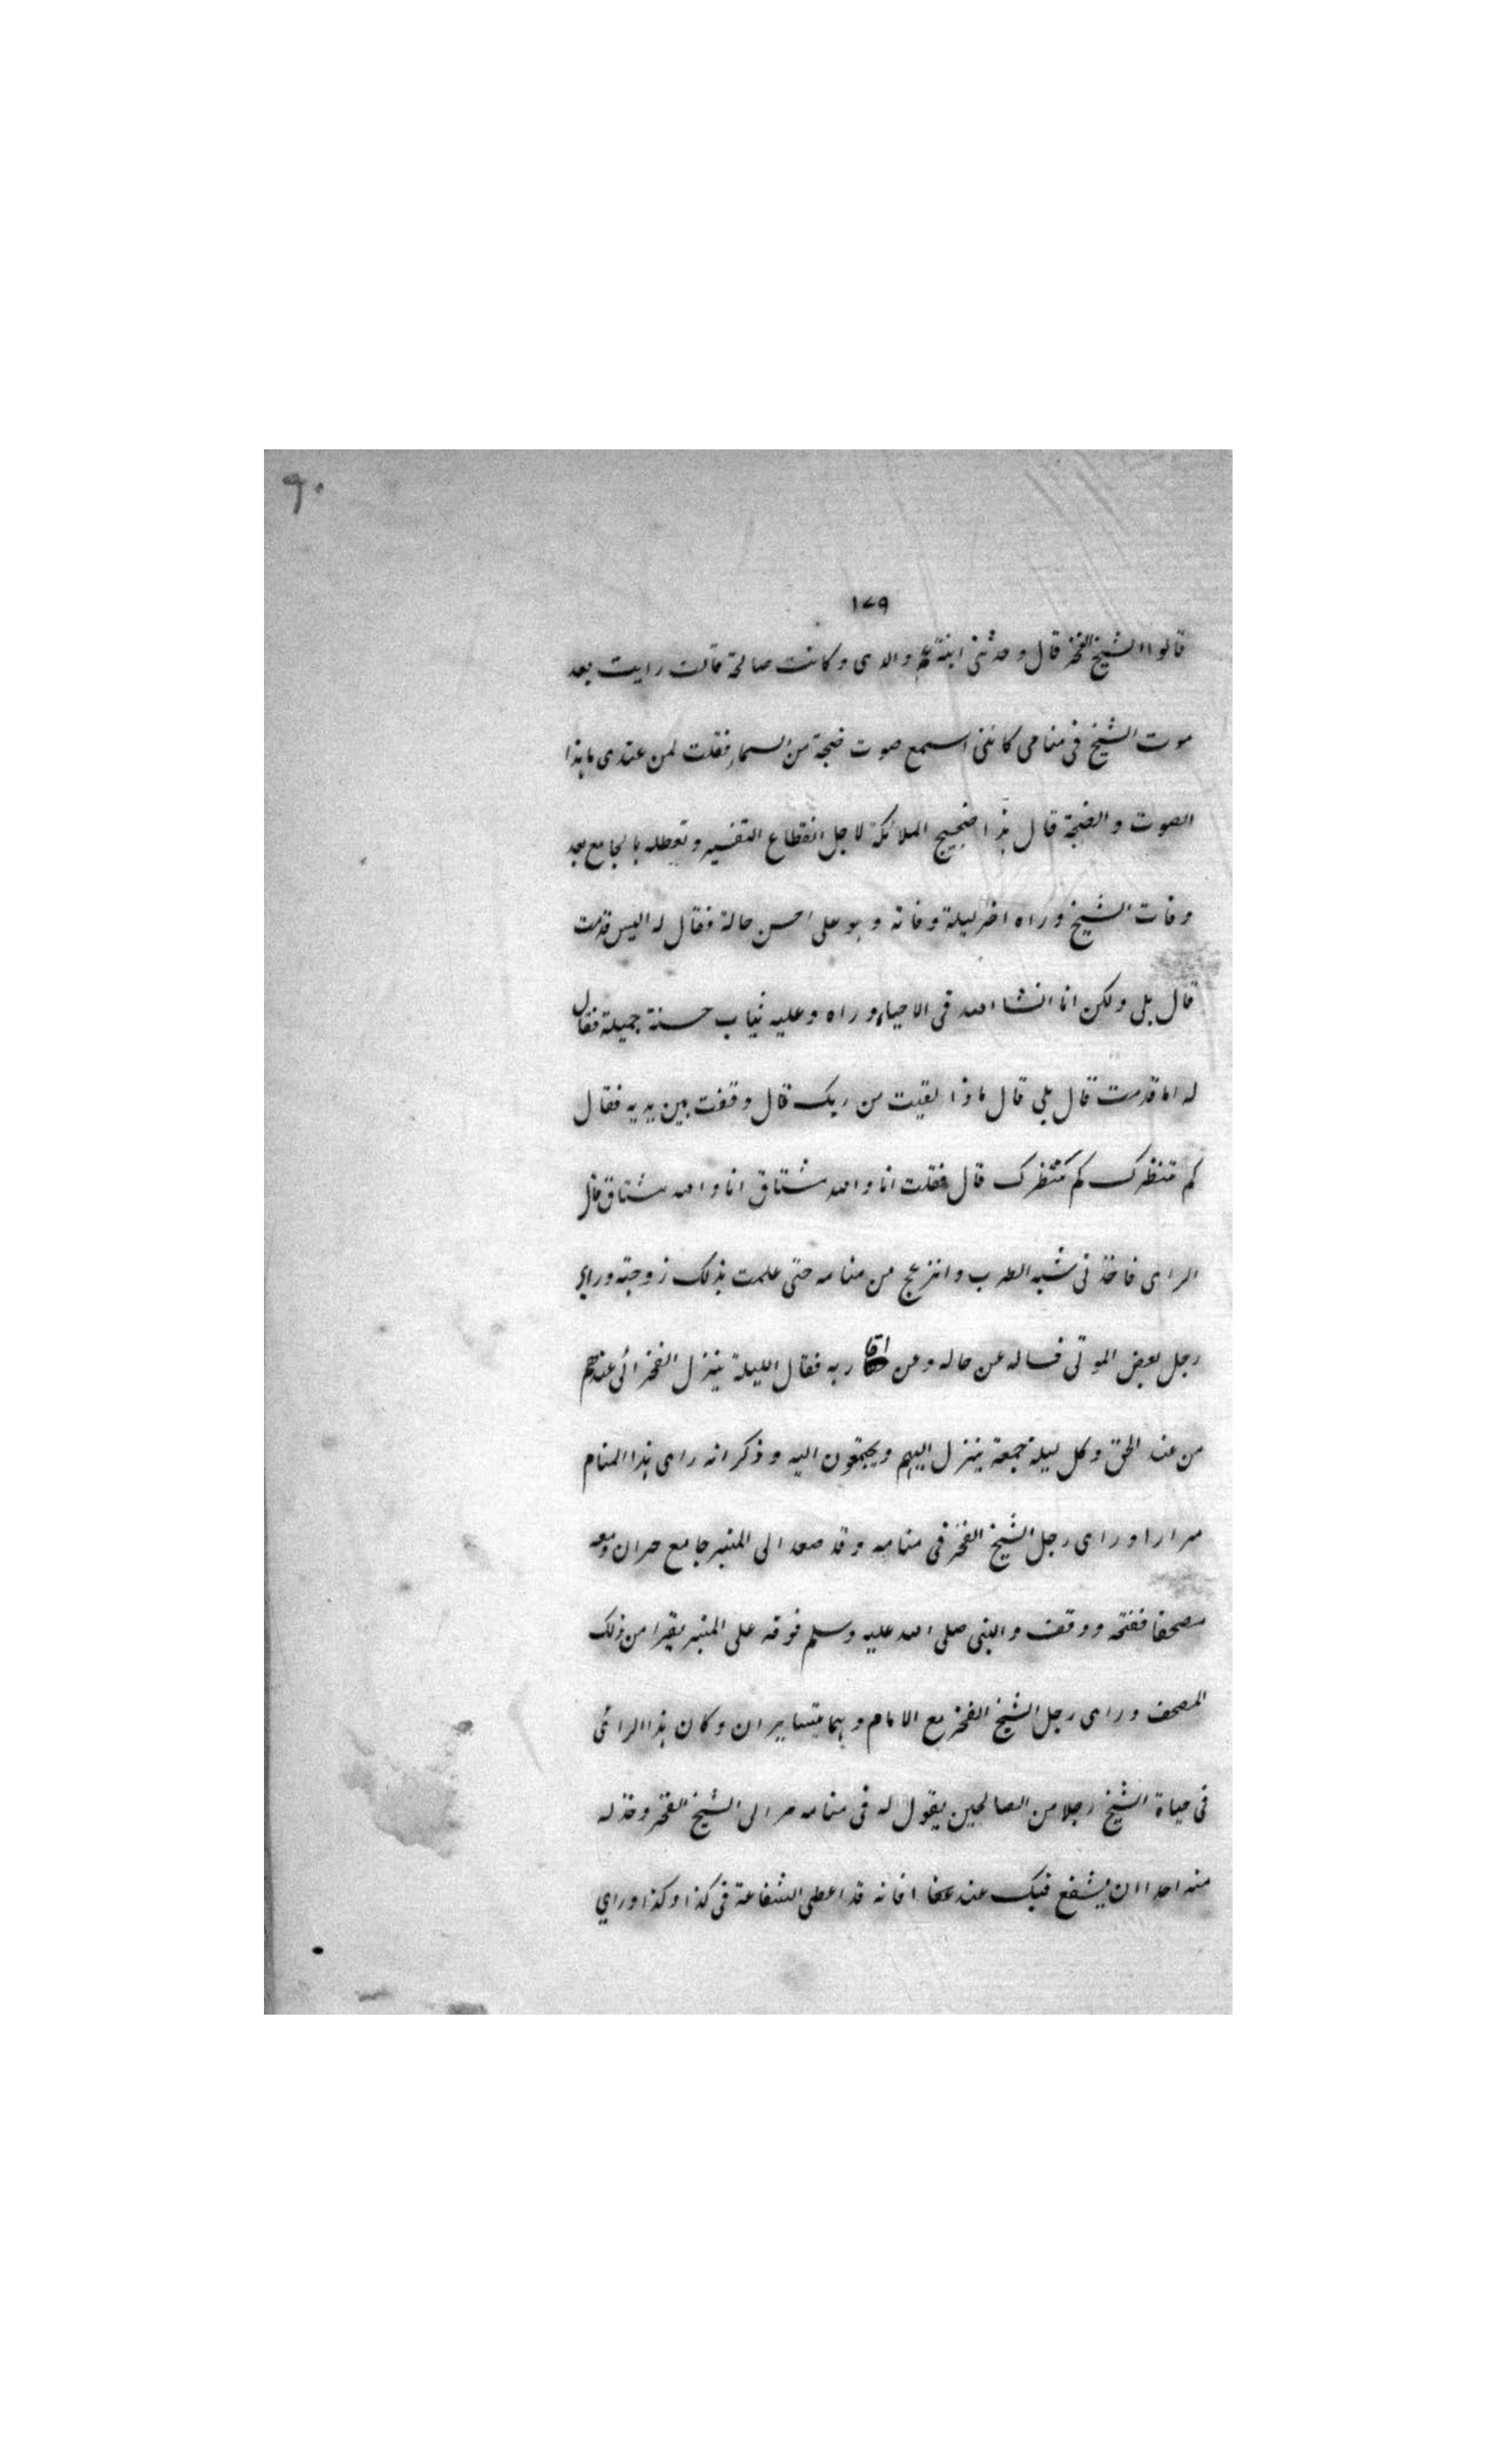 ٩٠
١٧٩
قالوا الشيخ الفخر قال وحدثنى ابنة عم والدى وكانت صالحة قالت رايت بعد
موت الشيخ فى منامى كاننى اسمع صوت ضجة من السماء فقلت لمن عندى ما هذا
الصوت والضجة قال هذا ضجيج الملائكة لاجل انقطاع التفسير وتعطله بالجامع بعد
وفات الشيخ وراه اخر ليلة وفاته وهو على احسن حالة فقال له اليس قدمت
قال بلى ولكن انا انشا الله فى الاحياء وراه وعليه ثياب حسنة جميلة فقال
له اما قدمت قال بلى قال ماذا لقيت من ربك قال وقفت بين يديه فقال
كم تنظرك كم تنظرك قال فقلت انا والله مشتاق انا والله مشتاق قال
الراى فاخذنى شبه الطرب وانزعج من منامه حتى علمت بذلك زوجته وراي
رجل بعض الموتى فساله عن حاله وعن اقاربه فقال الليلة ينزل الفخر الى عندهم
من عند الحق وكل ليلة جمعة ينزل اليهم ويجتمعون اليه وذكر انه راى هذا المنام
مرارا وراى رجل الشيخ الفخر فى منامه وقد صعد الى المنبر جامع حران ومعه
مصحفا ففتحه ووقف والنبى صلى الله عليه وسلم فوقه على المنبر يقرا من ذلك
المصحف وراى رجل الشيخ الفخر مع الامام وهما يتسايران وكان هذا الرائى
فى حياة الشيخ رجلا من الصالحين يقول له فى منامه مر الى الشيخ الفخر وخذ له
منه احدا ان يشفع فيك عند فانه قد اعطى الشفاعة فى كذا وكذا وراي